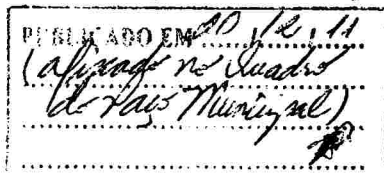 PUBLICADO EM 20/12/11
(afixado no Quadro
do Paço Municipal)